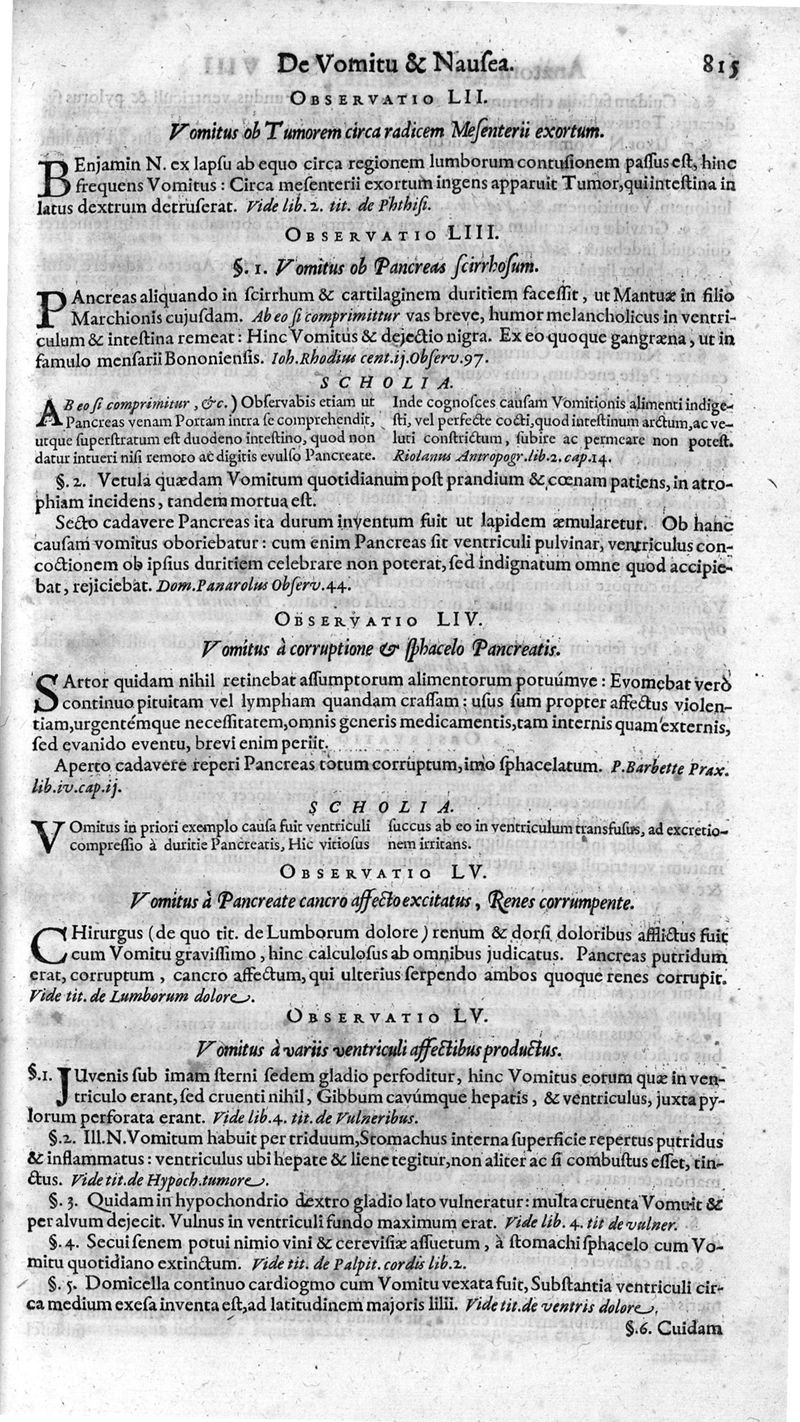 De Vomitu & Nauſea. 815
OBSERVATIO LII.
Vomitus ob Tumorem circa radicem Meſenterii exortum.
BEnjamin N. ex lapſu ab equo circa regionem lumborum contuſionem paſſus eſt, hinc
frequens Vomitus: Circa meſenterii exortum ingens apparuit Tumor, qui inteſtina in
latus dextrum detruſerat. Vide lib. 2. tit. de Phthiſi.
OBSERVATIO LIII.
§. 1. Vomitus ob Pancreas ſcirrhoſum.
PAncreas aliquando in ſcirrhum & cartilaginem duritiem faceſſit, ut Mantuæ in filio
Marchionis cujuſdam. Ab eo ſi comprimittur vas breve, humor melancholicus in ventri-
culum & inteſtina remeat: Hinc Vomitus & dejectio nigra. Ex eo quoque gangræna, ut in
famulo menſarii Bononienſis. Ioh. Rhodius cent. ij. Obſerv. 97.
SCHOLIA.
AB eo ſi comprimitur, &c.) Obſervabis etiam ut
Pancreas venam Portam intra ſe comprehendit,
utque ſuperſtratum eſt duodeno inteſtino, quod non
datur intueri niſi remoto ac digitis evulſo Pancreate.
Inde cognoſces cauſam Vomitionis alimenti indige-
ſti, vel perfecte cocti, quod inteſtinum arctum, ac ve-
luti conſtrictum, ſubire ac permeare non poteſt.
Riolanus Antropogr. lib. 2. cap. 14.
§. 2. Vetula quædam Vomitum quotidianum poſt prandium & cœnam patiens, in atro-
phiam incidens, tandem mortua eſt.
Secto cadavere Pancreas ita durum inventum fuit ut lapidem æmularetur. Ob hanc
cauſam vomitus oboriebatur: cum enim Pancreas ſit ventriculi pulvinar, ventriculus con-
coctionem ob ipſius duritiem celebrare non poterat, ſed indignatum omne quod accipie-
bat, rejiciebat. Dom. Panarolus Obſerv. 44.
OBSERVATIO LIV.
Vomitus à corruptione & ſphacelo Pancreatis.
SArtor quidam nihil retinebat aſſumptorum alimentorum potuúmve: Evomebat verò
continuo pituitam vel lympham quandam craſſam; uſus ſum propter affectus violen-
tiam, urgentémque neceſſitatem, omnis generis medicamentis, tam internis quam externis,
ſed evanido eventu, brevi enim periit.
Aperto cadavere reperi Pancreas totum corruptum, imo ſphacelatum. P. Barbette Prax.
lib. iv. cap. ij.
SCHOLIA.
VOmitus in priori exemplo cauſa fuit ventriculi
compreſſio à duritie Pancreatis, Hic vitioſus
ſuccus ab eo in ventriculum transfuſus, ad excretio-
nem irritans.
OBSERVATIO LV.
Vomitus à Pancreate cancro affecto excitatus, Renes corrumpente.
CHirurgus (de quo tit. de Lumborum dolore) renum & dorſi doloribus afflictus fuit
cum Vomitu graviſſimo, hinc calculoſus ab omnibus judicatus. Pancreas putridum
erat, corruptum, cancro affectum, qui ulterius ſerpendo ambos quoque renes corrupit.
Vide tit. de Lumborum dolore.
OBSERVATIO LV.
Vomitus à variis ventriculi affectibus productus.
§. 1. JUvenis ſub imam ſterni ſedem gladio perfoditur, hinc Vomitus eorum quæ in ven-
triculo erant, ſed cruenti nihil, Gibbum cavúmque hepatis, & ventriculus, juxta py-
lorum perforata erant. Vide lib. 4. tit. de Vulneribus.
§. 2. Ill. N. Vomitum habuit per triduum, Stomachus interna ſuperficie repertus putridus
& inflammatus: ventriculus ubi hepate & liene tegitur, non aliter ac ſi combuſtus eſſet, tin-
ctus. Vide tit. de Hypoch. tumore.
§. 3. Quidam in hypochondrio dextro gladio lato vulneratur: multa cruenta Vomuit &
per alvum dejecit. Vulnus in ventriculi fundo maximum erat. Vide lib. 4. tit de vulner.
§. 4. Secui ſenem potui nimio vini & cereviſiæ aſſuetum, à ſtomachi ſphacelo cum Vo-
mitu quotidiano extinctum. Vide tit. de Palpit. cordis lib. 2.
§. 5. Domicella continuo cardiogmo cum Vomitu vexata fuit, Subſtantia ventriculi cir-
ca medium exeſa inventa eſt, ad latitudinem majoris lilii. Vide tit. de ventris dolore.
§. 6. Cuidam